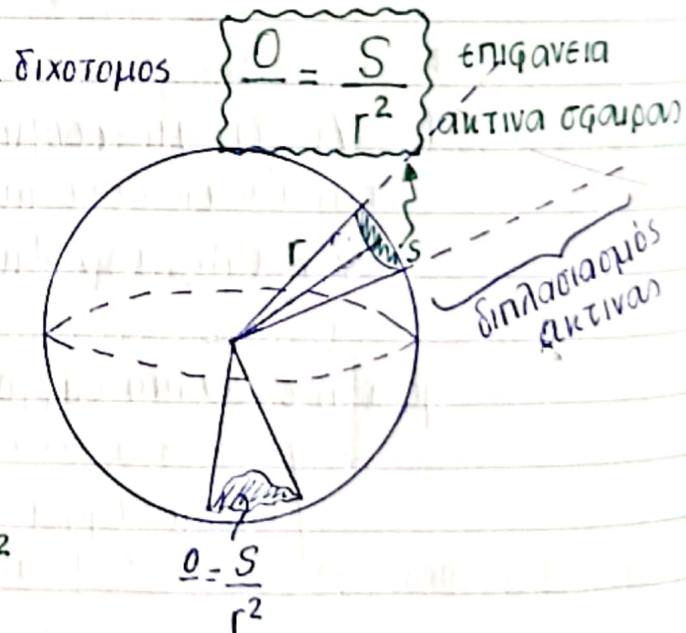 διχοτομος
Ο = S / r²
επιφανεια
ακτινα σφαιρας
r
S
διπλασιασμός
ακτινας
2
Ο = S / r²